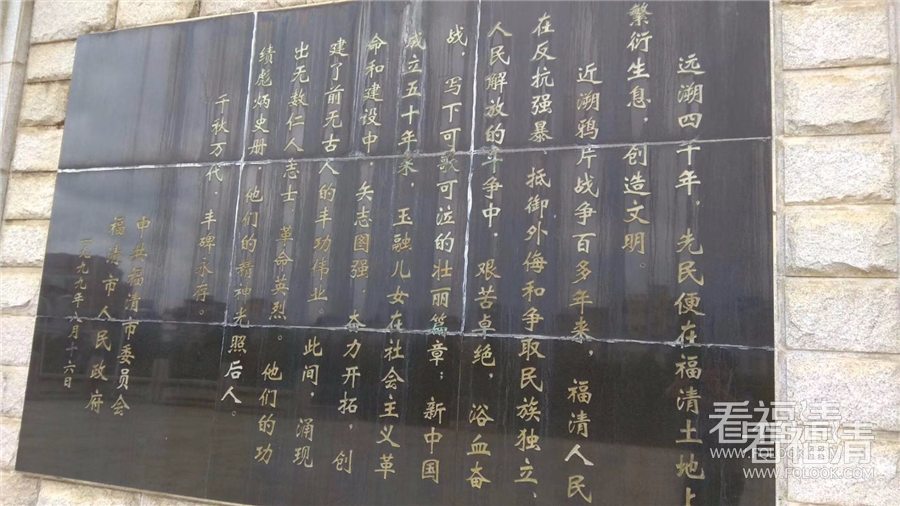 远溯四千年，先民便在福清土地上
繁衍生息，创造文明。
近溯鸦片战争百多年来，福清人民
在反抗强暴、抵御外侮和争取民族独立、
人民解放的斗争中，艰苦卓绝，浴血奋
战，写下可歌可泣的壮丽篇章；新中国
成立五十年来，玉融儿女在社会主义革
命和建设中，矢志图强 奋力开拓，创
建了前无古人的丰功伟业。此间，涌现
出无数仁人志士 革命英烈。他们的功
绩彪炳史册，他们的精神光照后人。
千秋万代，丰碑永存。
中共福清市委员会
福清市人民政府
一九九九年八月十六日
看福清
WWW.FQLOOK.COM
看福清
WWW.FQLOOK.COM